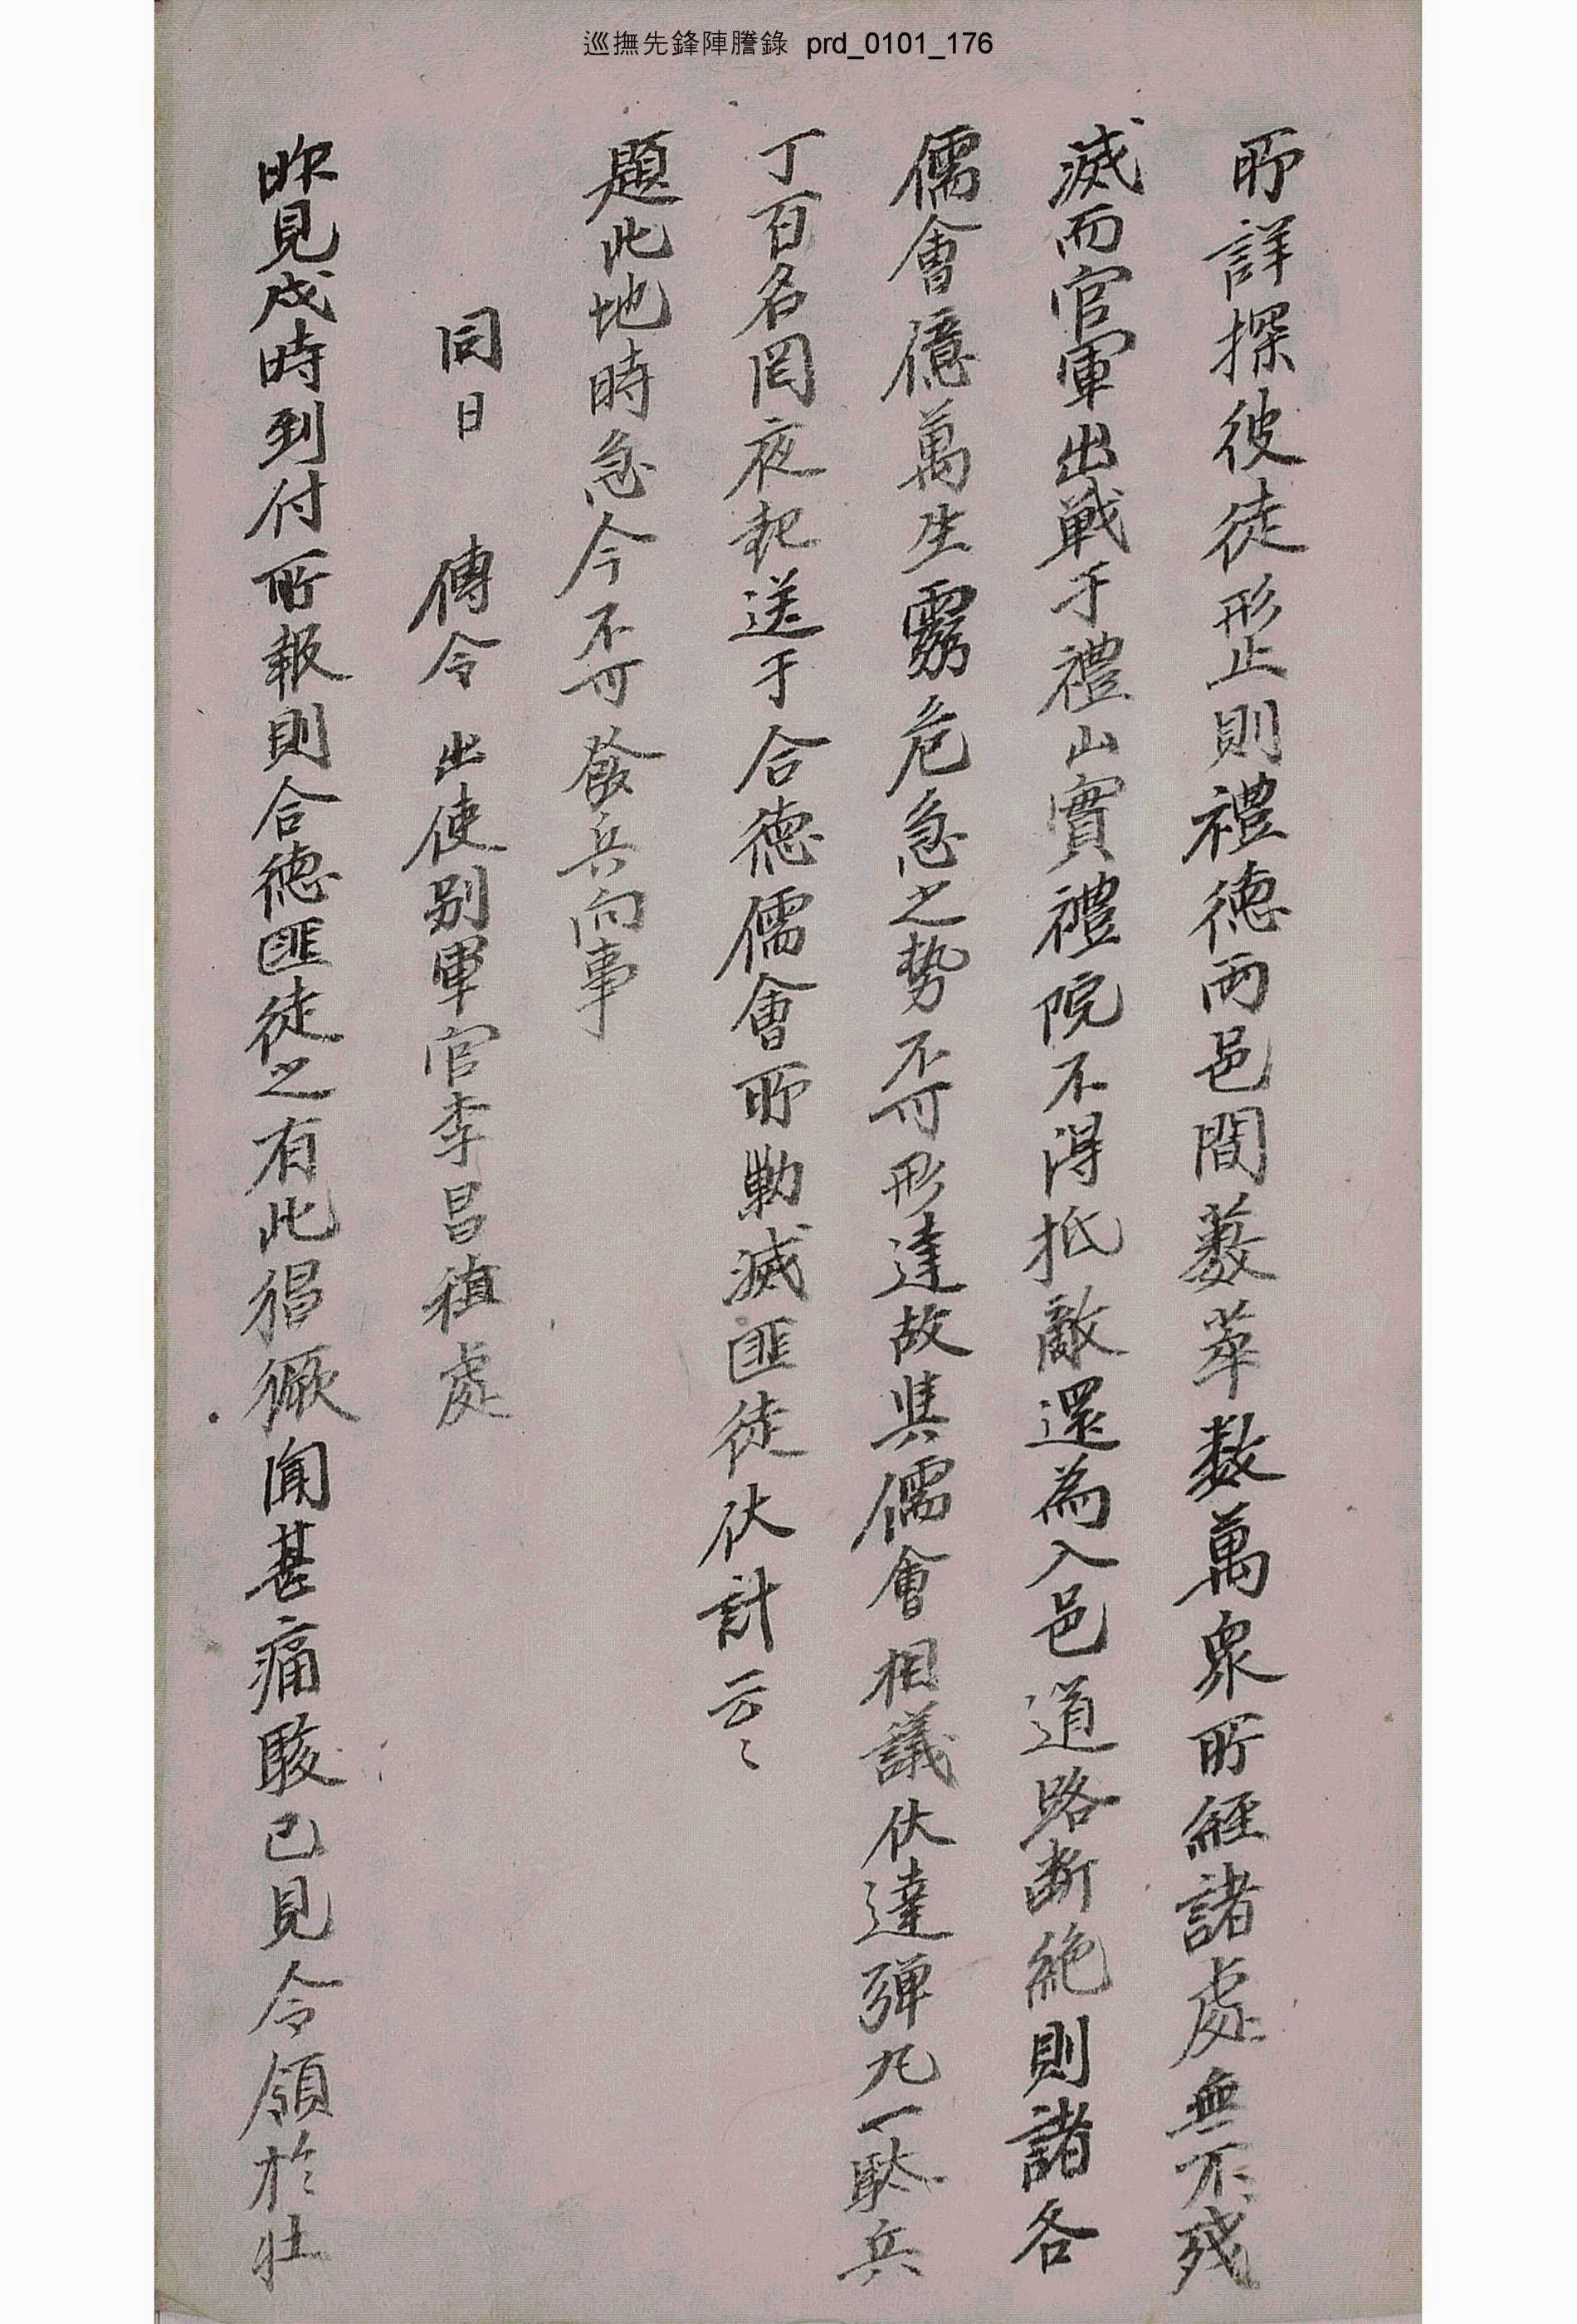 巡撫先鋒陣謄錄 prd_0101_176
所詳探彼徒形止則禮德兩邑間藪萃数萬衆所經諸處無不残
滅而官軍出戦于禮山實禮院不得抵敵還為入邑道路断絶則諸各
儒會億萬生霛危急之势不可形達故與儒會相議伏達弹丸一駄兵
丁百名罔夜起送于合德儒會所勦滅匪徒伏計云〻
題此地時急今不可發兵向事
同日 傳令 出使别軍官李昌稙處
昨見戌時到付所報則合德匪徒之有此猖獗聞甚痛駭已見令領於壮